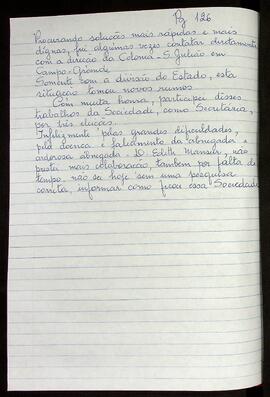 Pg 126
Procurando soluções mais rápidas e mais
dignas, fui algumas vezes contatar diretamente
com a direção da Colonia - S. Julião em
Campo-Grande.
Somente com a divisão do Estado, esta
situação tomou novos rumos
Com muita honra, participei desses
trabalhos da Sociedade, como Secretária,
por três eleições.
Infelizmente pelas grandes dificuldades,
pela doença e falecimento da abnegada e
ardorosa abnegada - D. Edith Mansur, não
prestei mais colaboração, tambem por falta de
tempo. não sei hoje sem uma pesquisa
correta, informar como ficou essa Sociedade